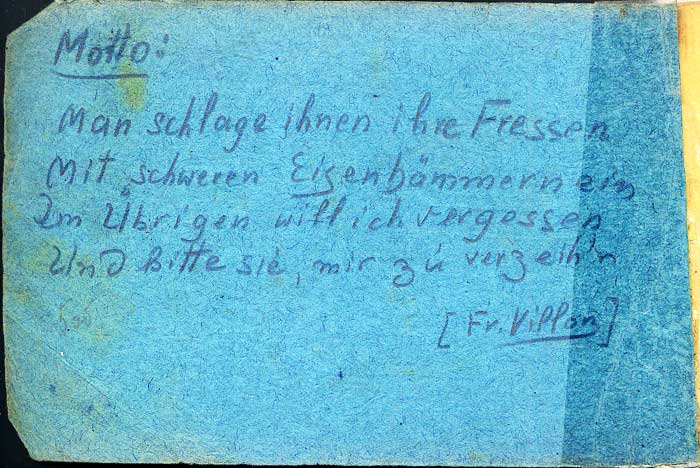 Motto:
Man schlage ihnen ihre Fressen
Mit schweren Eisenhämmern ein
Im Übrigen will ich vergessen
Und bitte sie, mir zu verzeih'n
[Fr. Villon]